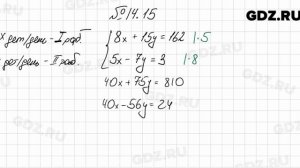 GDZ.RU
№14.15
x дет/день - I раб.
дет/день - II раб.
8x + 15y = 162 1·5
5x - 7y = 3 1·8
40x + 75y = 810
40x - 56y = 24
GDZ.RU